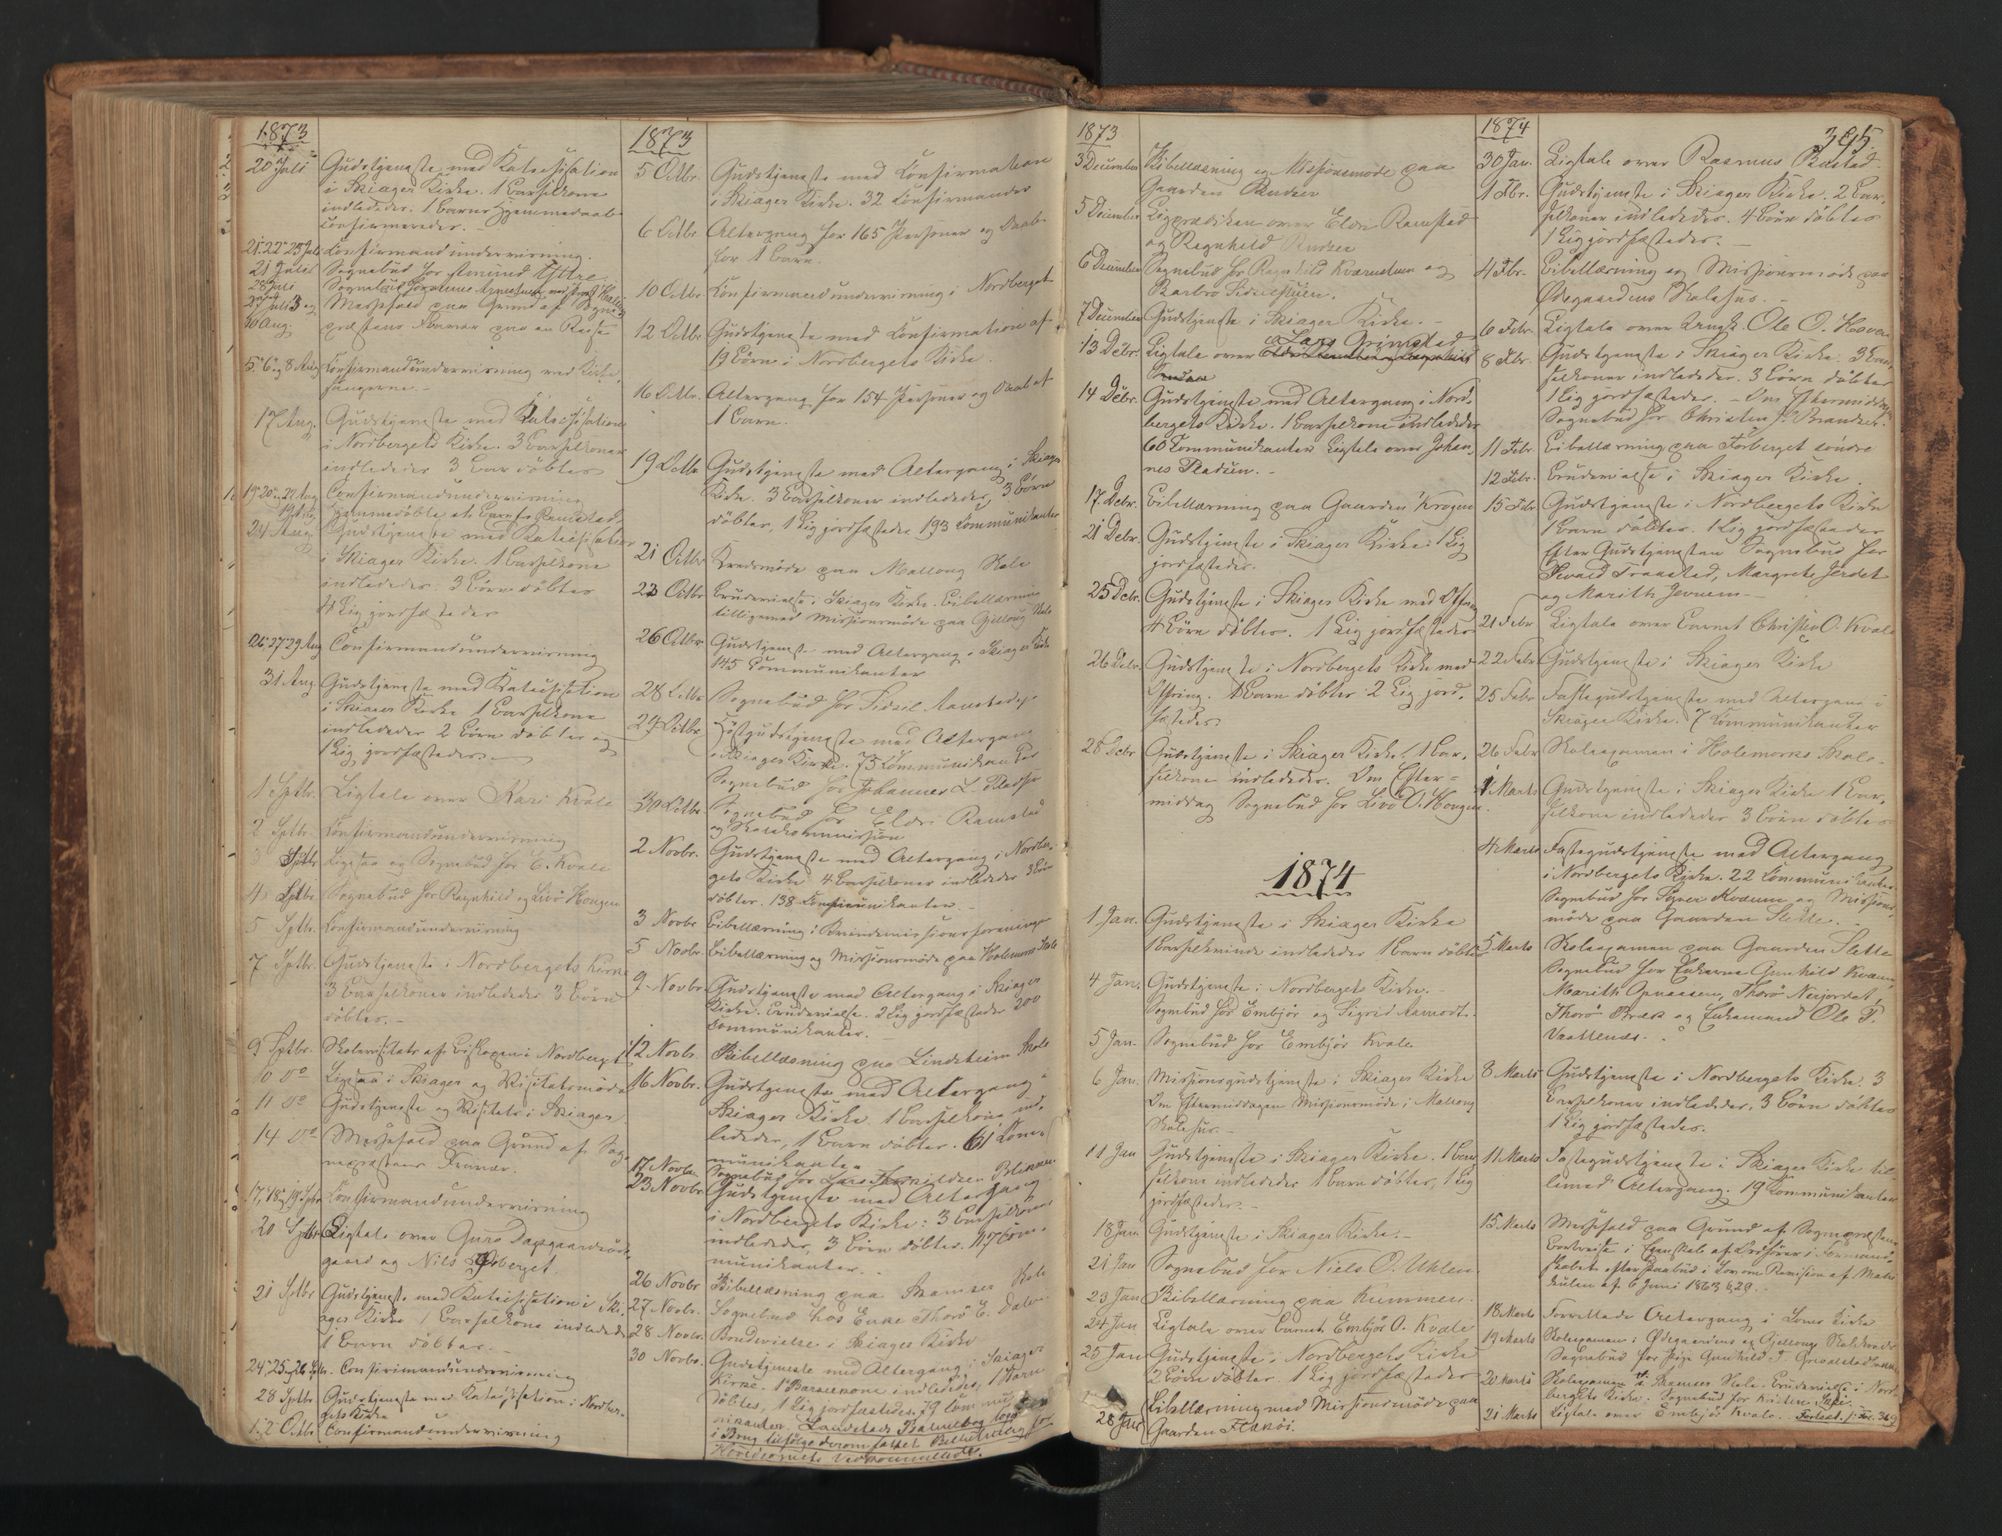 1873
20 Juli Gudstjeneste med Katechisation
i Skiager Kirke. 1 Barselkone
indlededes. 1 Barns Hjemmedaab
confirmeredes.
21. 22 25 Juli Confirmandundervisning.
21 Juli Sognebud for Amund
28 Juli Sognebud
Messefald paa Grund af Sogne-
10 Aug. præstens Fravær paa en Reise
5. 6 og 8 Aug Confirmandundervisning ved Kirke-
sangerne.
17 Aug. Gudstjeneste med Katechisation
i Nordbergets Kirke. 3 Barselkoner
indledede 3 Børn døbtes
19 20 og 22 Aug Confirmandundervisning
Hjemmedøbte et Barn fra Ramstad
24 Aug. Gudstjeneste med Katechisation
i Skiager Kirke. 1 Barselkone
indledede. 3 Børn døbtes
Lig jordfæstedes
26. 27. 29 Aug Confirmandundervisning
31 Aug. Gudstjeneste med Katechisation
i Skiager Kirke 1 Barselkone
indledede 2 Børn døbtes og
1 Lig jordfæstedes.
1 Sptbr. Ligtale over Kari Kvale
2 Sptbr. Confirmandundervisning
3 Sptbr og Sognebud for E. Kvale
4 Sptbr Sognebud for Ragnhild og Livö Hougen
5 Sptbr. Confirmandundervisning
7 Sptbr. Gudstjeneste i Nordbergets Kirke
3 Barselkoner indledede 3 Børn
døbtes.
9 Sptbr. Skolevisitats af Biskopen i Nordberget
10 do i Skiager og Visitatsmøde
11 do Gudstjeneste og Visitats i Skiager
14 do Messefald paa Grund af Sog-
nepræstens Fravær.
17, 18 og 19 Sptbr Confirmandundervisning
20 Sptbr Ligtale over Guro Dagsgaard
gaard og Nils
21 Sptbr Gudstjeneste med Katechisation i Ski-
ager Kirke 1 Barselkone indledede
1 Barn døbtes.
24. 25 og 26 Sptbr. Confirmandundervisning
28 Sptbr Gudstjeneste med Katechisation i Nordber-
gets Kirke
1. 2 Octbr Confirmandundervisning
1873
5 Octbr. Gudstjeneste med Confirmation
i Skiager Kirke. 32 Confirmander
6 Octbr Altergang for 165 Personer og Daab
for 1 Barn.
10 Octbr. Confirmandundervisning i Nordberget
12 Octbr Gudstjeneste med Confirmation af
19 Børn i Nordbergets Kirke.
16 Octbr. Altergang for 154 Personer og Daab af
1 Barn.
19 Octbr Gudstjeneste med Altergang i Skiager
Kirke. 3 Barselkoner indledede, 3 Børn
døbtes, 1 Lig jordfæstedes 193 Communikanter
21 Octbr Kredsmøde paa Mellong Skole
22 Octbr Brudevielse i Skiager Kirke. Bibellæsning
tilligemed Missionsmøde paa Gjellong Skole
26 Octbr Gudstjeneste med Altergang i Skiager Kirke
145 Communikanter
28 Octbr Sognebud for Sidsil Ramstad
29 Octbr. Høstgudstjeneste med Altergang
i Skiager Kirke. 75 Communikanter
Sognebud for Johannes L.
30 Octbr. Sognebud for Eldri Ramstad
og Skolekommission
2 Novbr. Gudstjeneste med Altergang i Nordber-
gets Kirke 4 Barselkoner indledede 3 Børn
døbtes. 138 Communikanter.
3 Novbr Bibellæsning i Kvindemissionsforeningen
5 Novbr Bibellæsning og Missionsmøde paa Holemors Skole
9 Novbr. Gudstjeneste med Altergang i Skiager
Kirke. Brudevielse. 2 Lig jordfæstede 200
Communikanter.
12 Novbr. Bibellæsning paa Lindsheim Skole
16 Novbr. Gudstjeneste med Altergang i
Skiager Kirke. 1 Barselkone ind-
lededes, 1 Barn døbtes. 61 Com-
munikanter
17 Novbr Sognebud for Lars
23 Novbr. Gudstjeneste med Altergang
i Nordbergets Kirke: 3 Barselkoner
indledede, 3 Børn døbtes. 117 Com-
munikanter.
26 Novbr Bibellæsning paa Skamser Skole
27 Novbr. Sognebud hos Enke Thorö E. Dalen
28 Novbr. Brudevielse i Skiager Kirke
30 Novbr. Gudstjeneste med Altergang i Skiager
Kirke. 1 Barselkone indledede, 1 Barn
døbtes, 1 Lig jordfæstedes, 79 Commu-
nikanter. Landstads Psalmebog toges
i Brug tilfølge derom fattet Beslutning for
Hovedsognets Vedkommende.
1873
3 December Bibellæsning og Missionsmøde paa
Gaarden Rudsen
5 December Ligprædiken over Eldri Ramstad
og Ragnhild Rudsen
6 December Sognebud for Ragnhild Kvarnstuen og
Barbro
7 December Gudstjeneste i Skiager Kirke.
13 Debr. Ligtale over Lars Grimstad
14 Debr. Gudstjeneste med Altergang i Nord-
bergets Kirke. 1 Barselkone indledede
60 Communikanter Ligtale over Johan-
nes Stadum.
17. Debr. Bibellæsning paa Gaarden Krogen
21 Debr. Gudstjeneste i Skiager Kirke. 1 Lig
jordfæstedes.
25 Debr. Gudstjeneste i Skiager Kirke med Offring
4 Børn døbtes. 1 Lig jordfæstedes
26 Debr. Gudstjeneste i Nordbergets Kirke med
Offring. 1 Barn døbtes 2 Lig jord-
fæstedes
28 Debr Gudstjeneste i Skiager Kirke 1 Bar-
selkone indledede. Om Efter-
middag Sognebud for Livö O. Hougen
1874
1 Jan. Gudstjeneste i Skiager Kirke
1 Barselkvinde indledede 1 Barn døbtes
4 Jan. Gudstjeneste i Nordbergets Kirke.
Sognebud for Embjör og Sigrid Aamodt.
5 Jan. Sognebud for Embjör Kvale
6 Jan. Missionsgudstjeneste i Skiager Kirke
Om Eftermiddagen Missionsmøde i Mellong
Skolehus.
11 Jan Gudstjeneste i Skiager Kirke. 1 Bar-
selkone indledede 1 Barn døbtes, 1 Lig
jordfæstedes.
18 Jan Gudstjeneste i Skiager Kirke.
21 Jan Sognebud for Niels O. Uhlen
23 Jan Bibellæsning paa Kummen.
24 Jan Ligtale over Barnet Embjör O. Kvale
25 Jan Gudstjeneste i Nordbergets Kirke
2 Børn døbtes. 1 Lig jordfæstedes
28 Jan Bibellæsning med Missionsmøde paa
Gaarden Flekøi.
1874
395
30 Jan. Ligtale over Rasmus Bustad
1 Fbr. Gudstjeneste i Skiager Kirke. 2 Bar-
selkoner indledede. 4 Børn døbtes
1 Lig jordfæstedes.
4 Fbr. Bibellæsning og Missionsmøde paa
Ødegaardens Skolehus.
6 Febr. Ligtale over Ole O. Hoven
8 Fbr. Gudstjeneste i Skiager Kirke. 3 Bar-
selkoner indledede. 3 Børn døbtes
1 Lig jordfæstedes. Om Eftermiddagen
Sognebud for Christen J. Brandser.
11 Febr. Bibellæsning paa Forberget søndre
12 Febr. Brudevielse i Skiager Kirke.
15 Febr Gudstjeneste i Nordbergets Kirke
1 Barn døbtes. 1 Lig jordfæstedes
Efter Gudstjenesten Sognebud for
Sevald Traastad, Margrete Jerdet
og Marith
21 Febr Ligtale over Barnet Christen O. Kvale
22 Febr Gudstjeneste i Skiager Kirke
25 Febr Fastegudstjeneste med Altergang i
Skiager Kirke. 7 Communikanter
26 Febr Skoleexamen i Holemorks Skole.
1 Marts Gudstjeneste i Skiager Kirke 1 Bar-
selkone indledede 3 Børn døbtes
4 Marts Fastegudstjeneste med Altergang
i Nordbergets Kirke. 22 Communikanter
Sognebud for Kvam og Missions-
møde paa Gaarden Slette.
5 Marts Skoleexamen paa Gaarden Slette
Sognebud for Enkerne Gunhild Kvam
Marith Opnaasen, Thorö Nerjordet,
Thorö Bræk og Enkemand Ole T.
Vaattenes.
8 Marts Gudstjeneste i Nordbergets Kirke. 3
Barselkoner indledede. 3 Børn døbtes
1 Lig jordfæstedes.
11 Marts Fastegudstjeneste i Skiager Kirke til-
ligemed Altergang. 19 Communikanter
15 Marts Messefald paa Grund af Sognepræstens
Bortreise i Egenskab af Ordfører i Formand-
skabet efter Paabud i Lov om Revision af Matri-
kulen af 6 Juni 1863 § 29.
18 Marts Forrettede Altergang i Loms Kirke
19 Marts Skoleexamen i Ødegaardens og Gjellong Skolekreds
Sognebud for Pige Gunhild T.
20 Marts Skoleexamen i Skamser Skole. Brudevielse i Nord-
bergets Kirke. Sognebud for Kristen
21 Marts Ligtale over Embjör Kvale. Fortsat. p. Fol. 369